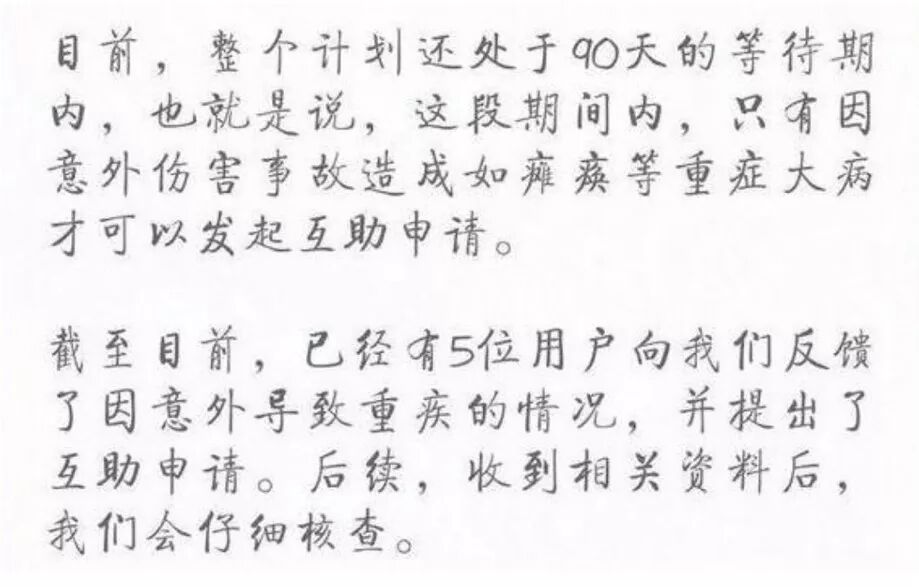 目前，整个计划还处于90天的等待期
内，也就是说，这段期间内，只有因
意外伤害事故造成如瘫痪等重症大病
才可以发起互助申请。
截至目前，已经有5位用户向我们反馈
了因意外导致重疾的情况，并提出了
互助申请。后续，收到相关资料后，
我们会仔细核查。